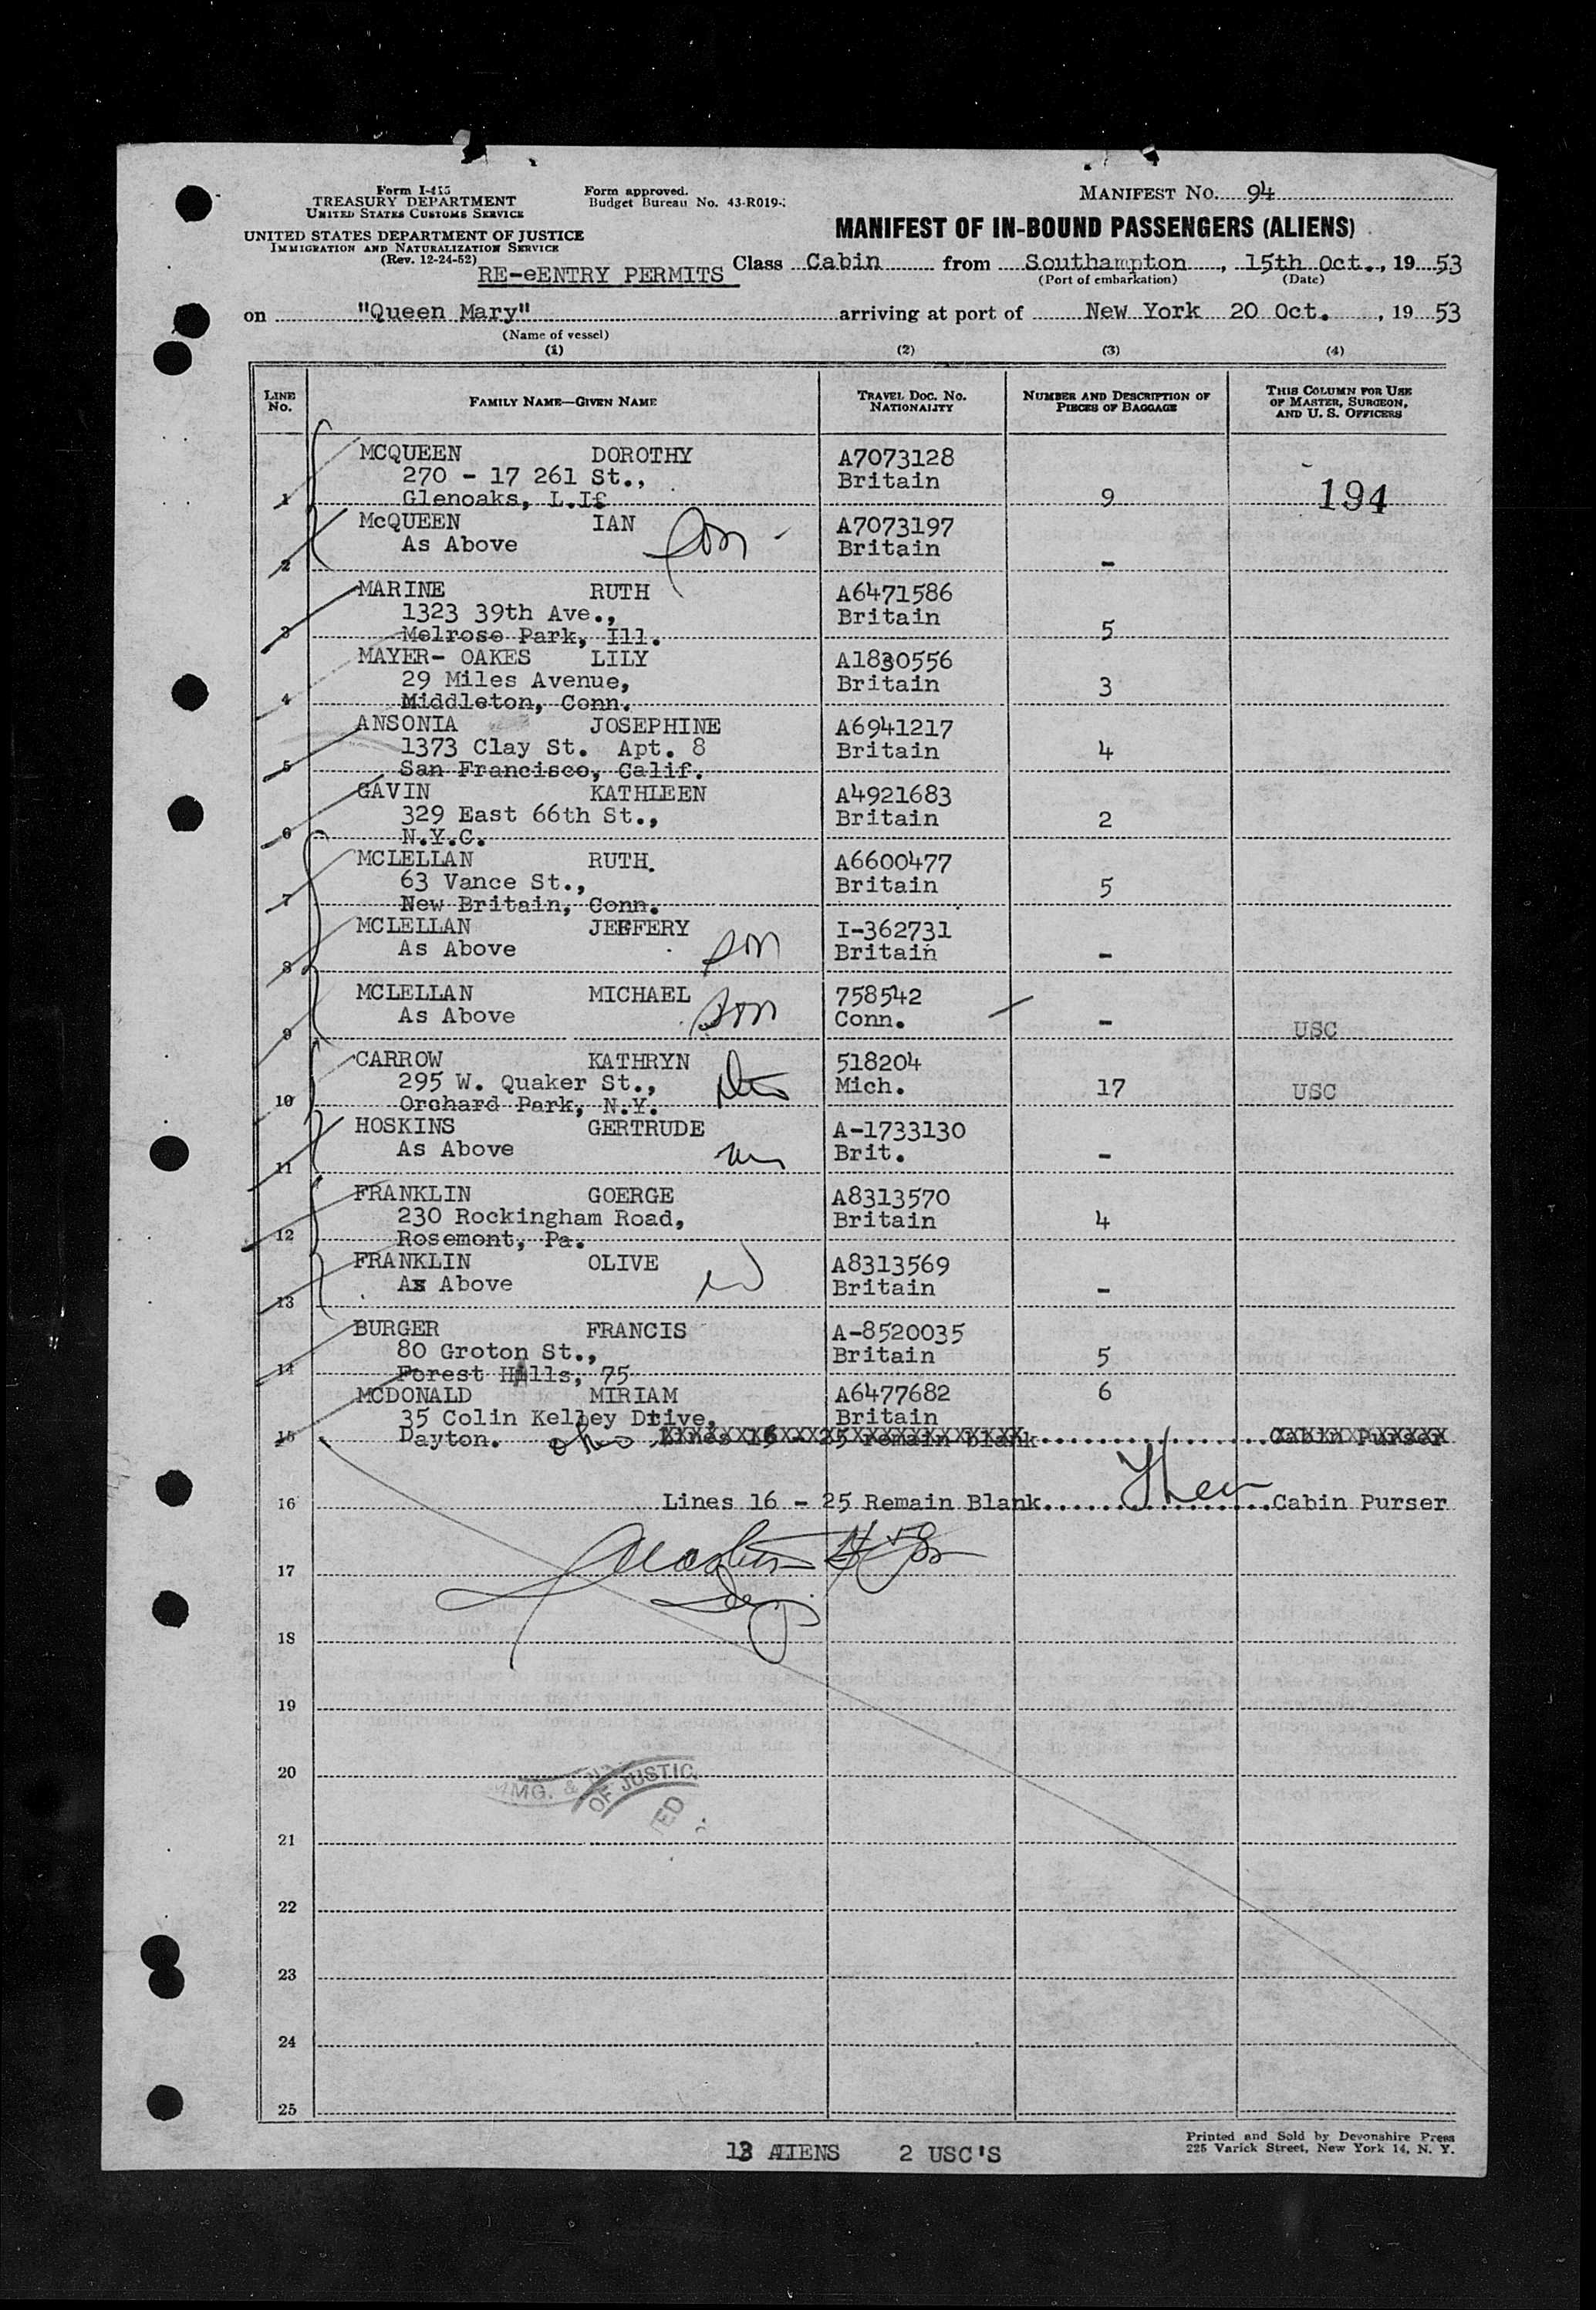 Form I-415
TREASURY DEPARTMENT
UNITED STATES CUSTOMS SERVICE
UNITED STATES DEPARTMENT OF JUSTICE
IMMIGRATION AND NATURALIZATION SERVICE
(Rev. 12-24-52)
Form approved.
Budget Bureau No. 43-R019-
MANIFEST NO. 94
MANIFEST OF IN-BOUND PASSENGERS (ALIENS)
RE-eENTRY PERMITS Class Cabin from Southampton, 15th Oct., 1953
(Port of embarkation) (Date)
on "Queen Mary" arriving at port of New York 20 Oct. , 1953
(Name of vessel)
(1) (2) (3) (4)
LINE No. FAMILY NAME—GIVEN NAME TRAVEL DOC. NO. NATIONALITY NUMBER AND DESCRIPTION OF PIECES OF BAGGAGE THIS COLUMN FOR USE OF MASTER, SURGEON, AND U. S. OFFICERS
MCQUEEN DOROTHY A7073128
270 - 17 261 St., Britain
1 Glenoaks, L.I. 9 194
McQUEEN IAN son A7073197
As Above Britain
2 -
MARINE RUTH A6471586
1323 39th Ave., Britain
3 Melrose Park, Ill. 5
MAYER- OAKES LILY A1830556
29 Miles Avenue, Britain 3
4 Middleton, Conn.
ANSONIA JOSEPHINE A6941217
1373 Clay St. Apt. 8 Britain 4
5 San Francisco, Calif.
GAVIN KATHLEEN A4921683
329 East 66th St., Britain 2
6 N.Y.C.
MCLELLAN RUTH. A6600477
63 Vance St., Britain 5
7 New Britain, Conn.
MCLELLAN JEFFERY son I-362731
As Above Britain -
8
MCLELLAN MICHAEL son 758542
As Above Conn. -
9 USC
CARROW KATHRYN 518204
295 W. Quaker St., Mich. 17 USC
10 Orchard Park, N.Y.
HOSKINS GERTRUDE A-1733130
As Above Brit. -
11
FRANKLIN GOERGE A8313570
230 Rockingham Road, Britain 4
12 Rosemont, Pa.
FRANKLIN OLIVE A8313569
As Above Britain -
13
BURGER FRANCIS A-8520035
80 Groton St., Britain 5
14 Forest Hills, 75
MCDONALD MIRIAM A6477682 6
35 Colin Kelley Drive, Britain
15 Dayton. Ohio Lines 16 - 25 remain blank Cabin Purser
16 Lines 16 - 25 Remain Blank Cabin Purser
17
18
19
20
IMMG. &
OF JUSTIC
ED
21
22
23
24
25
13 ALIENS 2 USC'S
Printed and Sold by Devonshire Press
225 Varick Street, New York 14, N. Y.